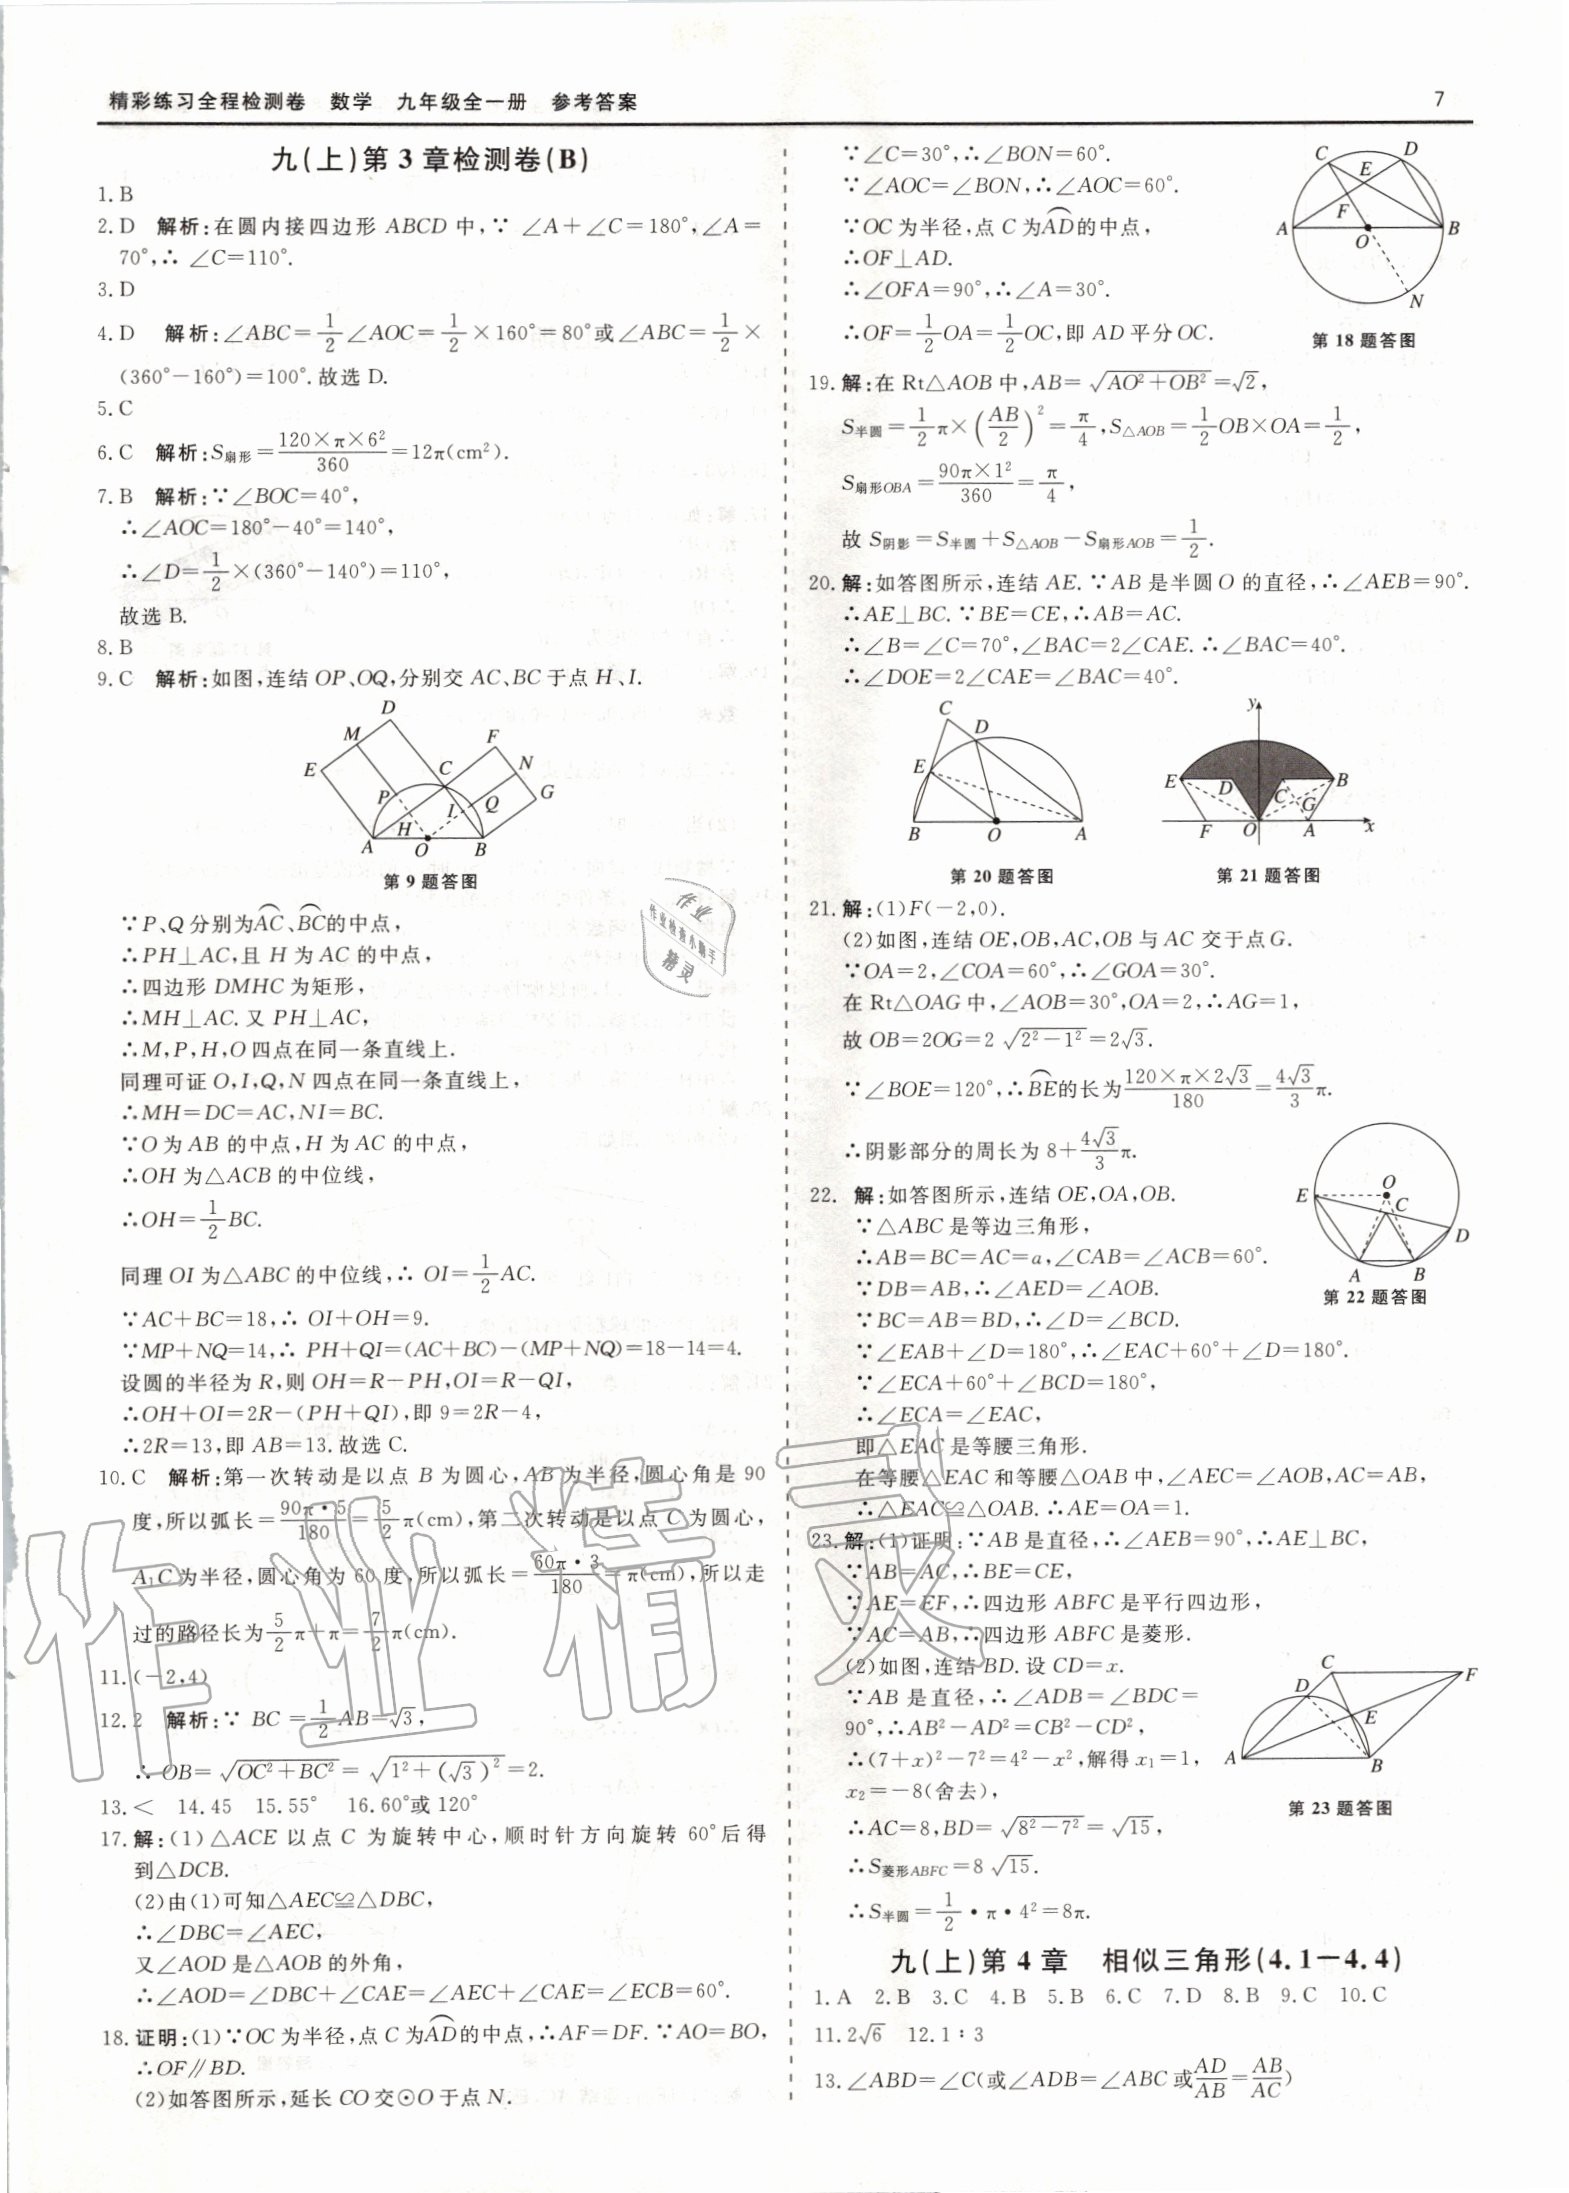 精彩练习全程检测卷 数学 九年级全一册 参考答案
7
九(上)第3章检测卷(B)
1. B
2. D 解析:在圆内接四边形 ABCD 中,∵ ∠A+∠C=180°,∠A=
70°,∴ ∠C=110°.
3. D
4. D 解析:∠ABC=1/2∠AOC=1/2×160°=80°或∠ABC=1/2×
(360°-160°)=100°.故选 D.
5. C
6. C 解析:S扇形=120×π×6²/360=12π(cm²).
7. B 解析:∵∠BOC=40°,
∴∠AOC=180°-40°=140°,
∴∠D=1/2×(360°-140°)=110°,
故选 B.
8. B
9. C 解析:如图,连结 OP、OQ,分别交 AC、BC 于点 H、I.
D
M
F
E
C
N
P
I
Q
G
H
A
O
B
第 9 题答图
∵P、Q 分别为AC⌒、BC⌒的中点,
∴PH⊥AC,且 H 为 AC 的中点,
∴四边形 DMHC 为矩形,
∴MH⊥AC.又 PH⊥AC,
∴M,P,H,O 四点在同一条直线上.
同理可证 O,I,Q,N 四点在同一条直线上,
∴MH=DC=AC,NI=BC.
∵O 为 AB 的中点,H 为 AC 的中点,
∴OH 为△ACB 的中位线,
∴OH=1/2BC.
同理 OI 为△ABC 的中位线,∴ OI=1/2AC.
∵AC+BC=18,∴ OI+OH=9.
∵MP+NQ=14,∴ PH+QI=(AC+BC)-(MP+NQ)=18-14=4.
设圆的半径为 R,则 OH=R-PH,OI=R-QI,
∴OH+OI=2R-(PH+QI),即 9=2R-4,
∴2R=13,即 AB=13.故选 C.
10. C 解析:第一次转动是以点 B 为圆心,AB 为半径,圆心角是 90
度,所以弧长=90π·5/180=5/2π(cm),第二次转动是以点 C 为圆心,
A₁C 为半径,圆心角为 60 度,所以弧长=60π·3/180=π(cm),所以走
过的路径长为5/2π+π=7/2π(cm).
11. (-2,4)
12. 2 解析:∵ BC=1/2AB=√3,
∴ OB=√(OC²+BC²)=√(1²+(√3)²)=2.
13. < 14. 45 15. 55° 16. 60°或 120°
17. 解:(1)△ACE 以点 C 为旋转中心,顺时针方向旋转 60°后得
到△DCB.
(2)由(1)可知△AEC≌△DBC,
∴∠DBC=∠AEC,
又∠AOD 是△AOB 的外角,
∴∠AOD=∠DBC+∠CAE=∠AEC+∠CAE=∠ECB=60°.
18. 证明:(1)∵OC 为半径,点 C 为AD⌒的中点,∴AF=DF.∵AO=BO,
∴OF∥BD.
(2)如答图所示,延长 CO 交⊙O 于点 N.
∵∠C=30°,∴∠BON=60°.
∵∠AOC=∠BON,∴∠AOC=60°.
∵OC 为半径,点 C 为AD⌒的中点,
∴OF⊥AD.
∴∠OFA=90°,∴∠A=30°.
∴OF=1/2OA=1/2OC,即 AD 平分 OC.
C
D
E
F
A
O
B
N
第 18 题答图
19. 解:在 Rt△AOB 中,AB=√(AO²+OB²)=√2,
S半圆=1/2π×(AB/2)²=π/4,S△AOB=1/2OB×OA=1/2,
S扇形OBA=90π×1²/360=π/4,
故 S阴影=S半圆+S△AOB-S扇形AOB=1/2.
20. 解:如答图所示,连结 AE.∵AB 是半圆 O 的直径,∴∠AEB=90°.
∴AE⊥BC.∵BE=CE,∴AB=AC.
∴∠B=∠C=70°,∠BAC=2∠CAE.∴∠BAC=40°.
∴∠DOE=2∠CAE=∠BAC=40°.
C
D
E
B
O
A
第 20 题答图
y
E
D
C
B
G
F
O
A
x
第 21 题答图
21. 解:(1)F(-2,0).
(2)如图,连结 OE,OB,AC,OB 与 AC 交于点 G.
∵OA=2,∠COA=60°,∴∠GOA=30°.
在 Rt△OAG 中,∠AOB=30°,OA=2,∴AG=1,
故 OB=2OG=2√(2²-1²)=2√3.
∵∠BOE=120°,∴BE⌒的长为120×π×2√3/180=4√3/3π.
∴阴影部分的周长为 8+4√3/3π.
22. 解:如答图所示,连结 OE,OA,OB.
∵△ABC 是等边三角形,
∴AB=BC=AC=a,∠CAB=∠ACB=60°.
∵DB=AB,∴∠AED=∠AOB.
∵BC=AB=BD,∴∠D=∠BCD.
∵∠EAB+∠D=180°,∴∠EAC+60°+∠D=180°.
∵∠ECA+60°+∠BCD=180°,
∴∠ECA=∠EAC,
即△EAC 是等腰三角形.
在等腰△EAC 和等腰△OAB 中,∠AEC=∠AOB,AC=AB,
∴△EAC≌△OAB.∴AE=OA=1.
O
E
C
D
A
B
第 22 题答图
23. 解:(1)证明:∵AB 是直径,∴∠AEB=90°,∴AE⊥BC,
∵AB=AC,∴BE=CE,
∵AE=EF,∴四边形 ABFC 是平行四边形,
∵AC=AB,∴四边形 ABFC 是菱形.
(2)如图,连结 BD.设 CD=x.
∵AB 是直径,∴∠ADB=∠BDC=
90°,∴AB²-AD²=CB²-CD²,
∴(7+x)²-7²=4²-x²,解得 x₁=1,
x₂=-8(舍去),
∴AC=8,BD=√(8²-7²)=√15,
∴S菱形ABFC=8√15.
∴S半圆=1/2·π·4²=8π.
C
F
D
E
A
B
第 23 题答图
九(上)第4章 相似三角形(4.1－4.4)
1. A 2. B 3. C 4. B 5. B 6. C 7. D 8. B 9. C 10. C
11. 2√6 12. 1∶3
13. ∠ABD=∠C(或∠ADB=∠ABC 或AD/AB=AB/AC)
作业
作业检查小助手
精灵
作业精灵